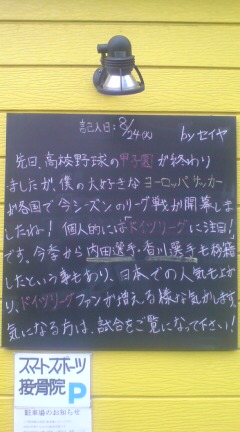 記入日：8/24(火)
by セイヤ
先日、高校野球の甲子園が終わり
ましたが、僕の大好きなヨーロッパサッカー
が各国で今シーズンのリーグ戦が開幕しま
したね！個人的には「ドイツリーグ」に注目！
です。今季から内田選手・香川選手も移籍
したという事もあり、日本での人気も上が
り、ドイツリーグファンが増える様な気がします。
気になる方は、試合をご覧になって下さい！
スマートスポーツ
接骨院 P
駐車場のお知らせ